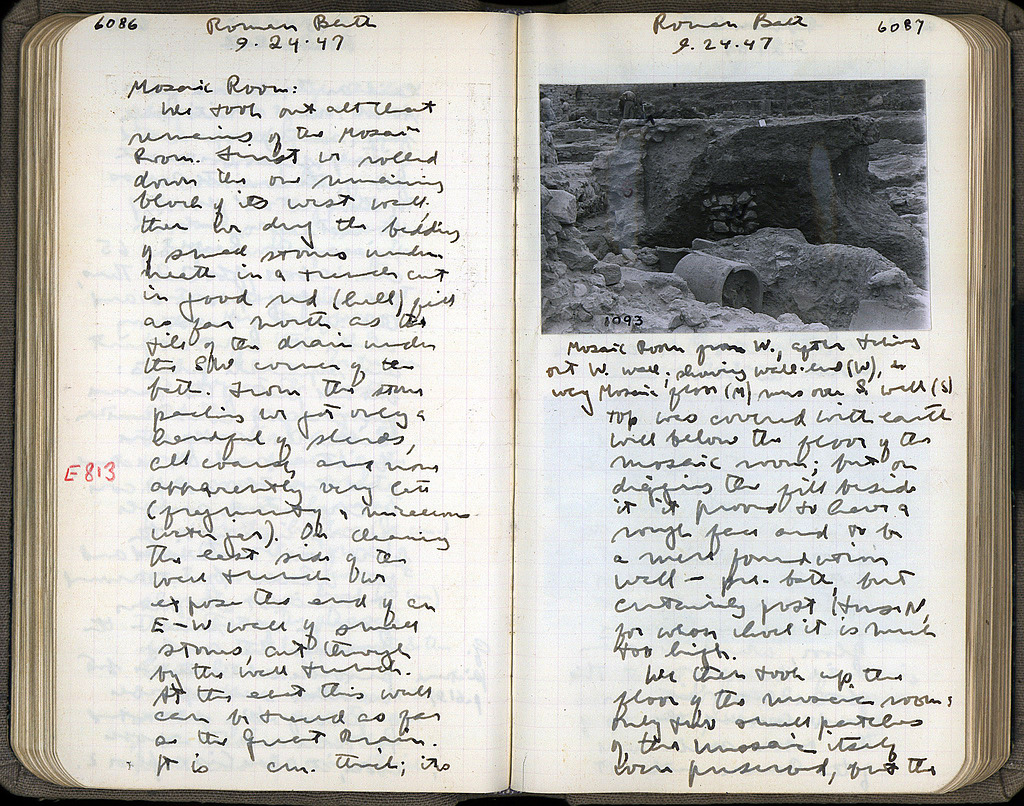 6086
Roman Bath
9.24.47
Mosaic Room:
We took out all that
remains of the Mosaic
Room. First we rolled
down the one remaining
block of its west wall.
Then we dug the bedding
of small stones under
neath in a trench cut
in good red (Hell) fill
as far north as the
fill of the drain under
the SW corner of the
bath. From the stone
packing we got only a
handful of sherds,
all coarse and none
E 813
apparently very late
(fragments of a micaceous
water jar). On cleaning
the east side of the
wall trench we
expose the end of an
E-W wall of small
stones, cut through
by the wall trench.
At the east this wall
can be traced as far
as the Great Drain.
It is cm. thick; its
Roman Bath
9.24.47
6087
1093
Mosaic Room from W., after taking
out W. wall, showing wall-end (W),
way Mosaic floor (M) runs over S wall (S)
top was covered with earth
well below the floor of the
mosaic room; but on
digging the fill beside
it it proved to have a
rough face and to be
a mere foundation
wall - pre-bath, but
certainly post House N,
for whose level it is much
too high.
We then took up the
floor of the mosaic room:
only two small patches
of the mosaic itself
were preserved, but the